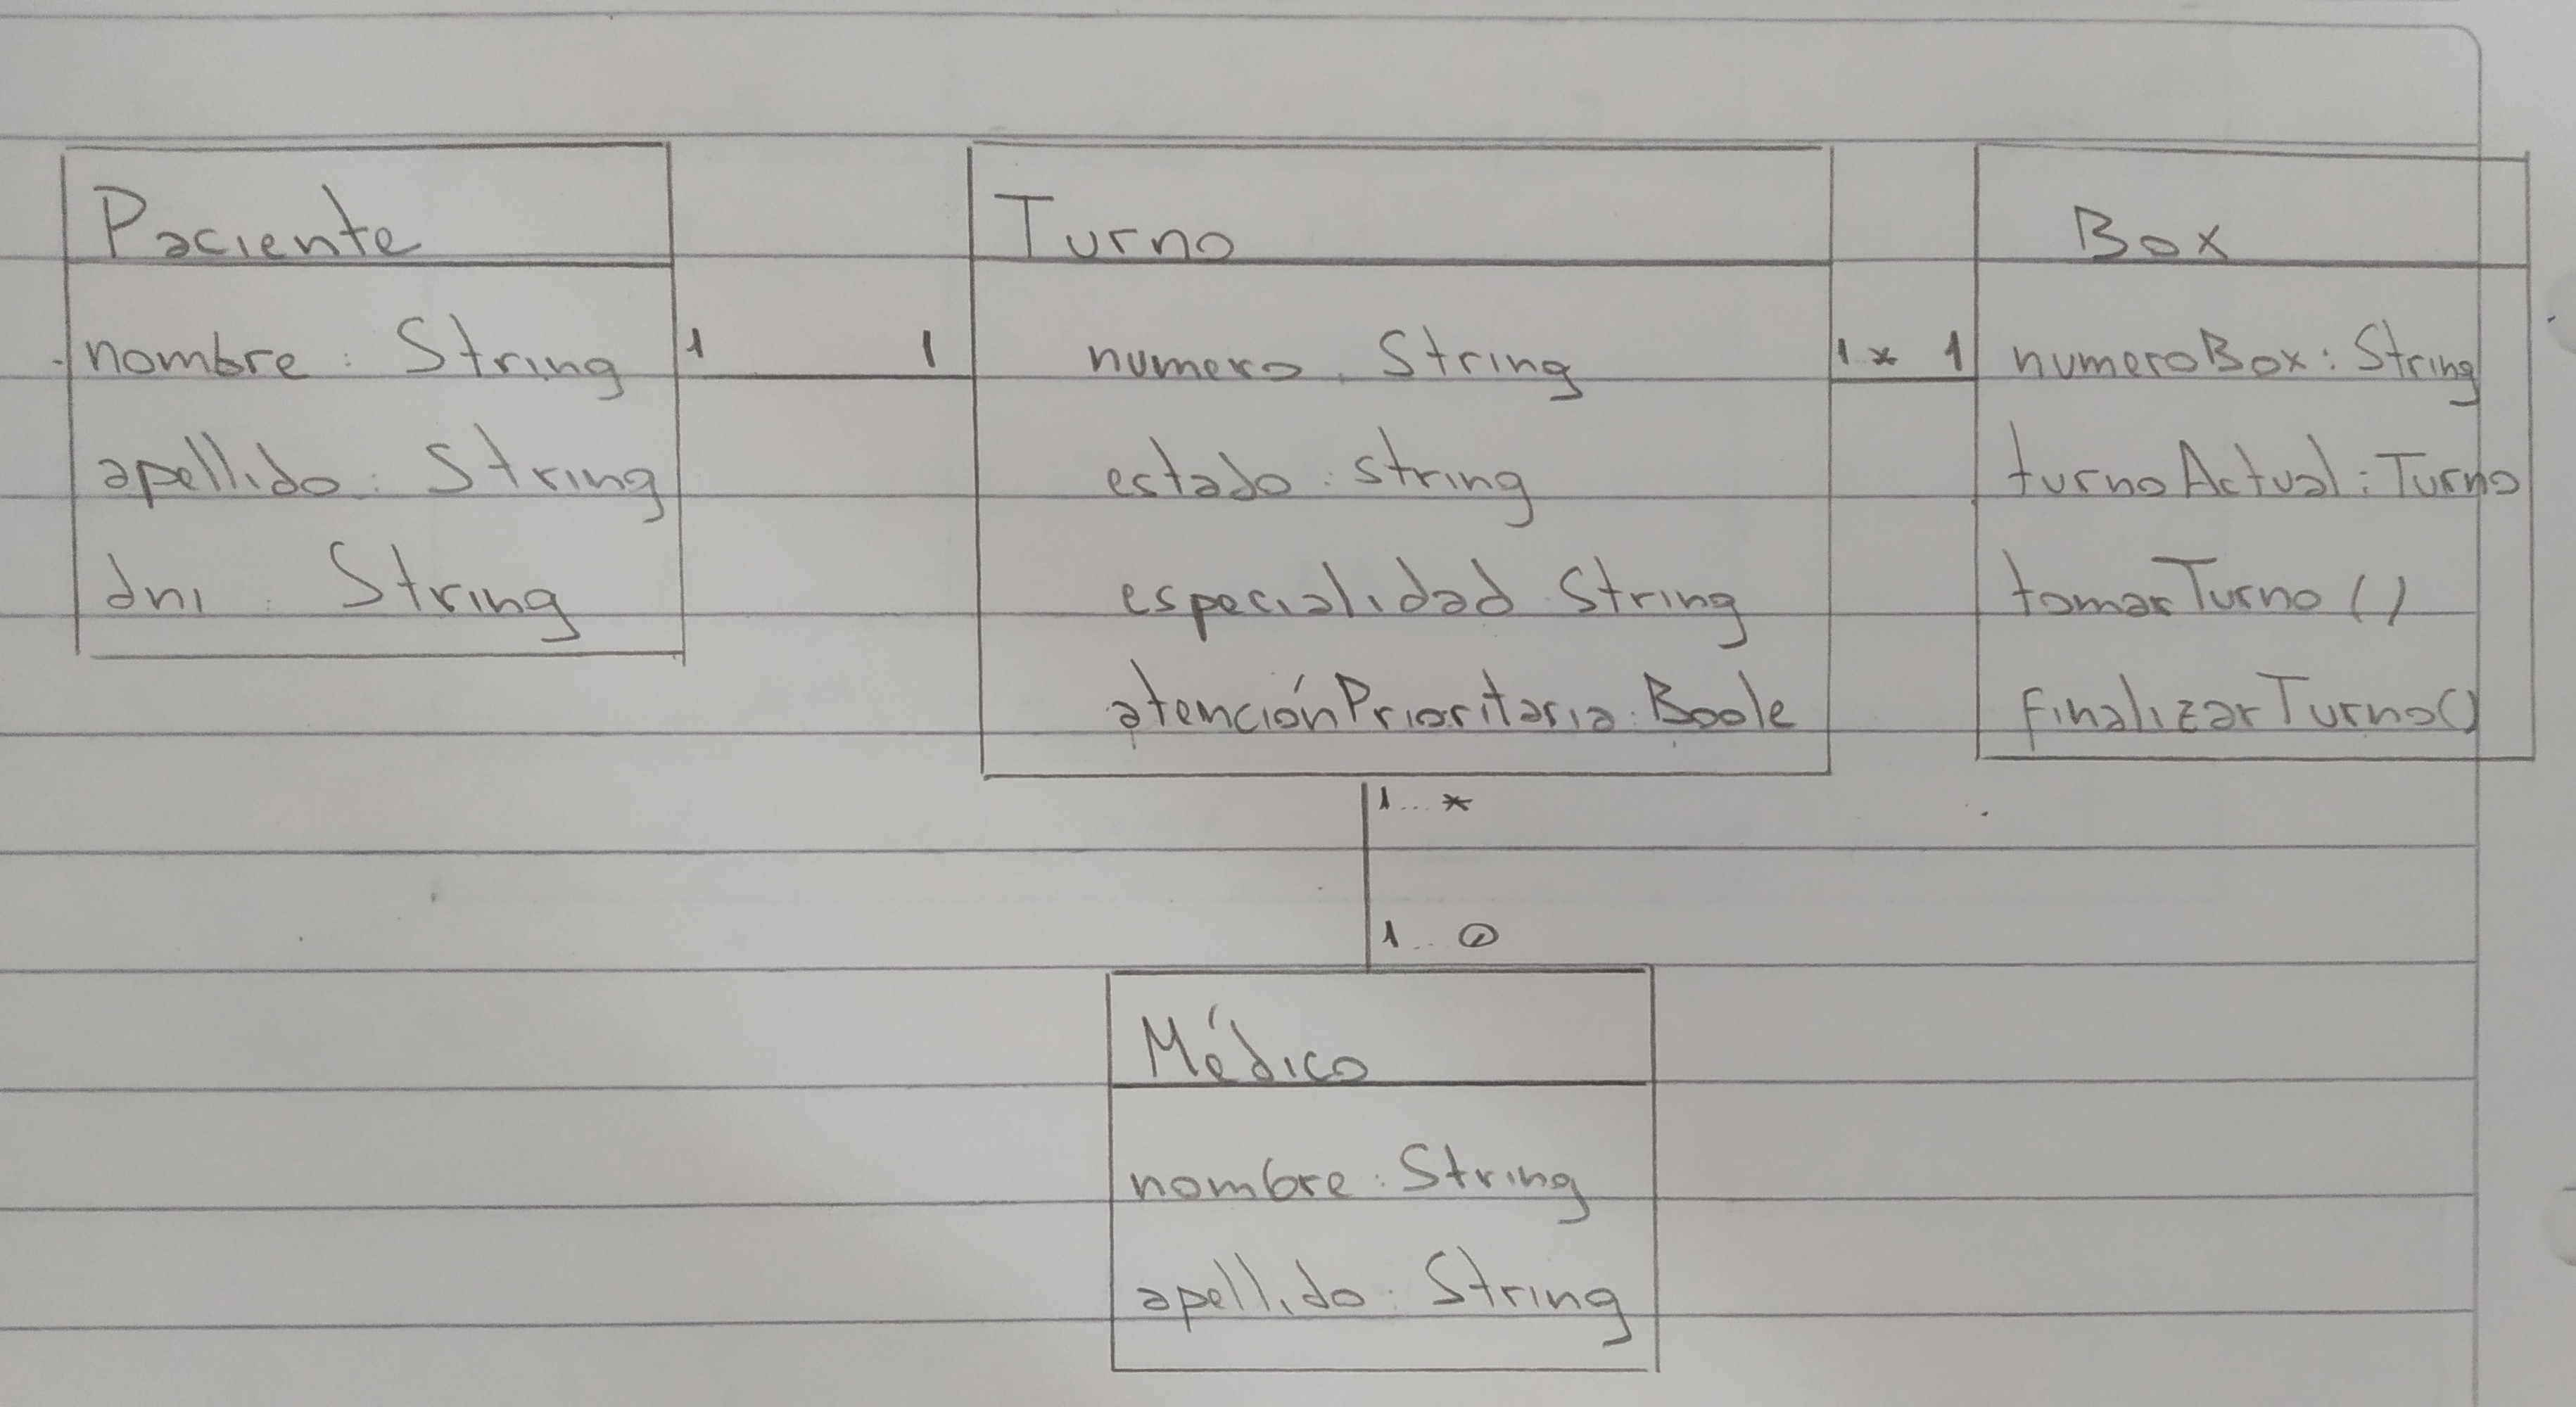 Paciente
nombre: String
apellido: String
dni: String
1 1
Turno
numero. String
estado: string
especialidad String
atenciónPrioritaria: Boole
1 * 1
Box
numeroBox: String
turnoActual: Turno
tomarTurno ()
finalizarTurno()
1...*
1..
Médico
nombre: String
apellido: String